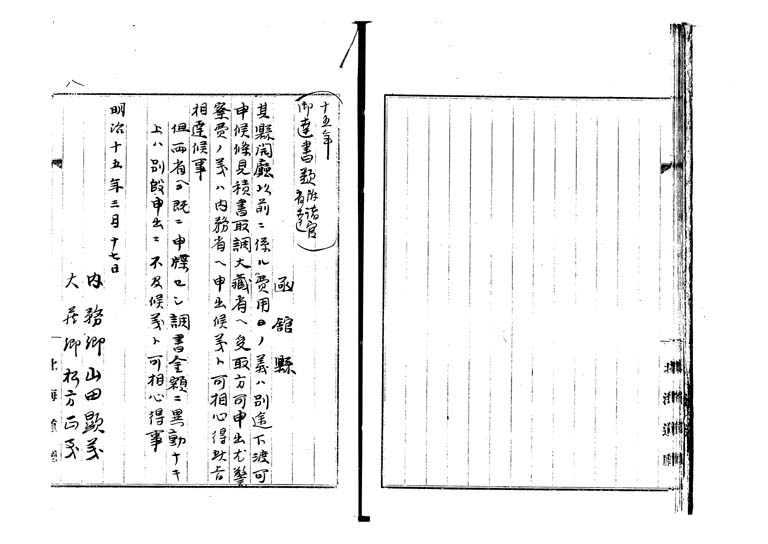 十五年
御達書類 除諸官省達
函館縣
其縣開廳以前ニ係ル費用ノ義ハ別途下渡可
申候條見積書取調大藏省ヘ受取方可申出尤警
察費ノ義ハ内務省ヘ申出候義ト可相心得此旨
相達候事
但両省ヘ既ニ申牒セシ調書金額ニ異動ナキ
上ハ別段申出ニ不及候義ト可相心得事
明治十五年三月十七日
内務卿山田顕義
大藏卿松方正義
八
北海道廳